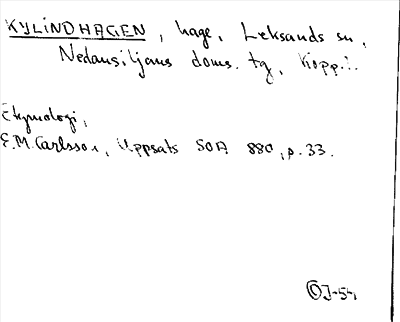 KYLINDHAGEN, hage, Leksands sn,
Nedansiljans doms. tg, Kopp.l.
Etymologi,
E.M. Carlsson, Uppsats SOA 880, p. 33.
OJ-54